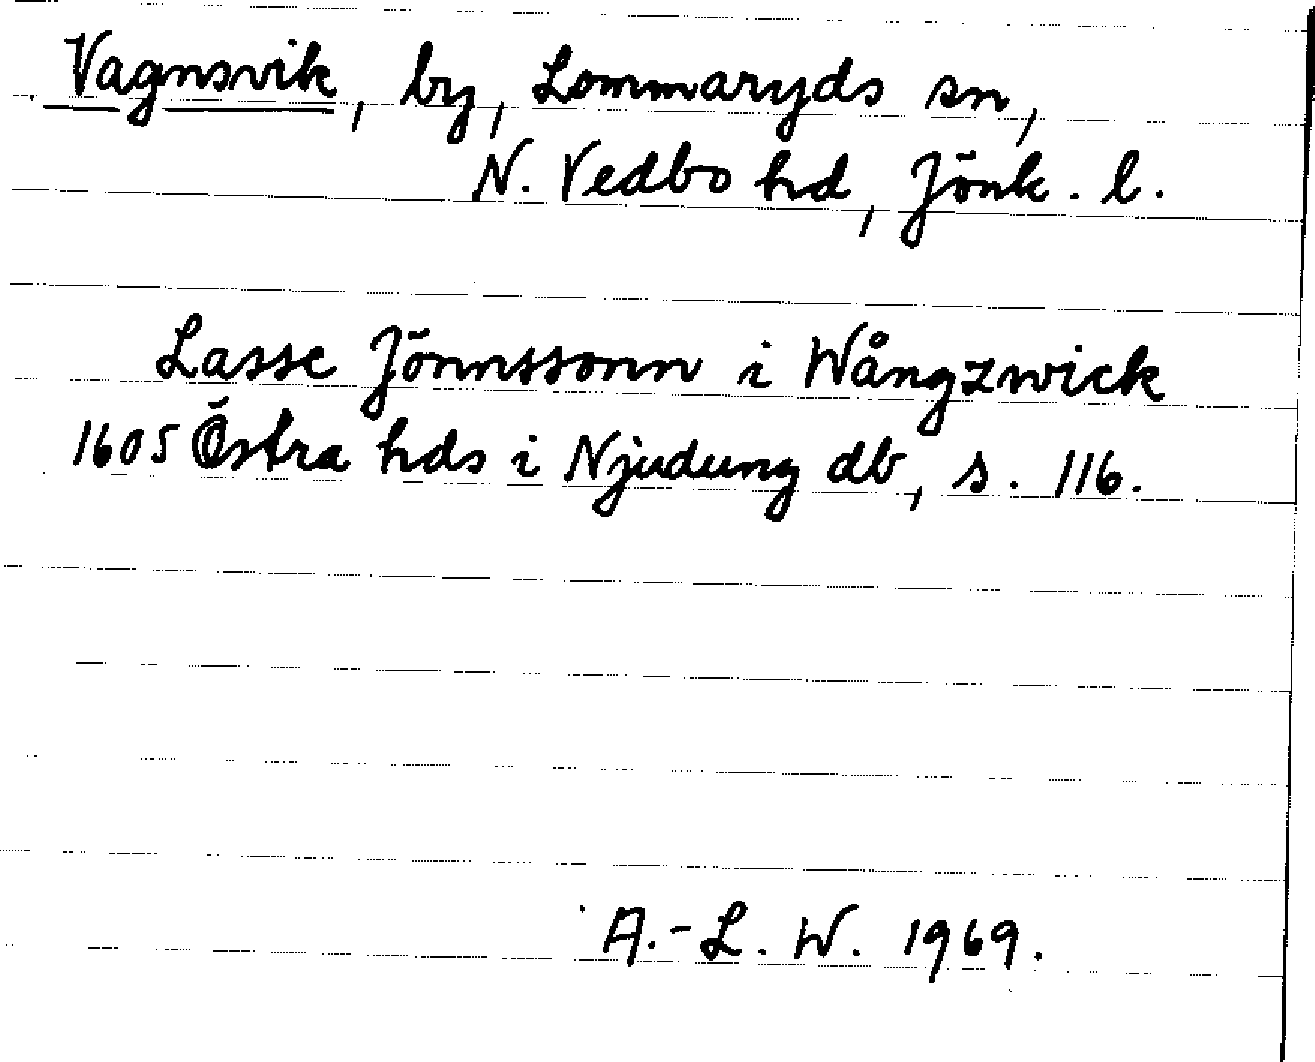 Vagnsvik, by, Lommaryds sn,
N. Vedbo hd, Jönk. l.
Lasse Jönnssonn i Wångzwick
1605 Östra hds i Njudung db, s. 116.
A.-L. W. 1969.